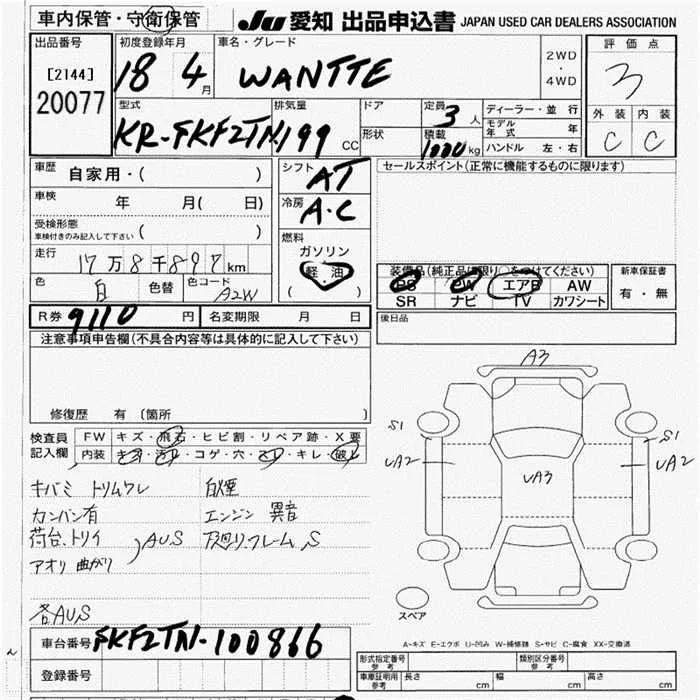 車内保管・守衛保管
JU 愛知 出品申込書 JAPAN USED CAR DEALERS ASSOCIATION
出品番号
[2144]
20077
初度登録年月
18 4月
車名・グレード
WANTTE
2WD
・
4WD
評価点
3
外装 内装
C C
型式
KR-FKF2TN
排気量
199 CC
ドア
形状
定員
3人
積載
1000 kg
ディーラー・並行
モデル年式 年
ハンドル 左・右
車歴
自家用・( )
車検
年 月( 日)
受検形態
車検付きのみ記入して下さい ( )
走行
17万8千897km
色
白
色替
色コード
A2W
シフト
AT
冷房
A・C
燃料
ガソリン
軽・油
( )
セールスポイント(正常に機能するものに限ります)
装備品(純正品に限り○をつけてください)
PS PW エアB AW
SR ナビ TV カワシート
新車保証書
有・無
後日品
R券 9110 円 名変期限 月 日
注意事項申告欄(不具合内容等は具体的に記入して下さい)
修復歴 有 〔箇所 〕
検査員記入欄
FW キズ・飛石・ヒビ割・リペア跡・X要
内装 キズ・汚れ・コゲ・穴・スレ・キレ・破レ
キバミ トリムワレ
カンバン有
荷台、トリイ
アオリ 曲がり
AUS
各AUS
白煙
エンジン 異音
下廻り、フレーム、S
A3
S1
UA2
UA3
S1
UA2
スペア
A-キズ E-エクボ U-凹み W-補修跡 S-サビ C-腐食 XX-交換済
車台番号 FKF2TN-100866
登録番号
形式指定番号
参考
類別区分番号
参考
車庫証明用
参考
長さ cm 幅 cm 高さ cm